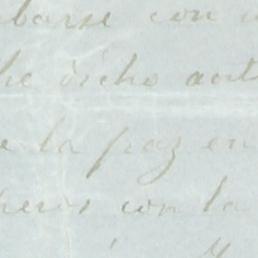 barse con
he dicho ant
e la paz en
heros con la